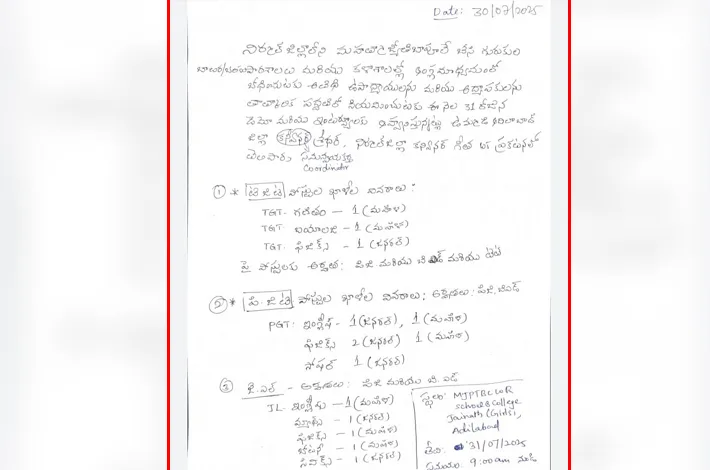 Date: 30/07/2025
నిర్మల్ జిల్లాలోని మహాత్మా జ్యోతిబాపూలే బీసీ గురుకుల
పాఠశాలలు మరియు కళాశాలల్లో ఇంగ్లీష్ మాధ్యమంలో
బోధించుటకు అతిథి ఉపాధ్యాయులను మరియు అధ్యాపకులను
తాత్కాలిక పద్ధతిలో నియమించుటకు ఈ నెల 31 తేదీన
డెమో మరియు ఇంటర్వ్యూలకు ఉమ్మడి ఆదిలాబాద్
జిల్లా శ్రీధర్, నిర్మల్ జిల్లా కన్వీనర్ గీత ఒక ప్రకటనలో
తెలిపారు. సమన్వయకర్త
Coordinator
① * టి జి టి పోస్టుల ఖాళీల వివరాలు:
TGT- గణితం - 1 (మహిళ)
TGT- బయాలజి - 1 (మహిళ)
TGT- ఫిజిక్స్ - 1 (జనరల్)
పై పోస్టులకు అర్హత: పి.జి మరియు బి.ఎడ్ మరియు టెట్
② * పి.జి.టి పోస్టుల ఖాళీల వివరాలు; అర్హతలు: పి.జి, బి.ఎడ్
PGT: ఇంగ్లీష్ - 1 (జనరల్), 1 (మహిళ)
ఫిజిక్స్ 2 (జనరల్) 1 (మహిళ)
సోషల్ 1 (జనరల్)
③ జె.ఎల్ - అర్హతలు: పి.జి మరియు బి.ఎడ్
JL- ఇంగ్లీషు - 1 (మహిళ)
మ్యాథ్స్ - 1 (జనరల్)
ఫిజిక్స్ - 1 (మహిళ)
బోటనీ - 1 (మహిళ)
సివిక్స్ - 1 (జనరల్)
స్థలం: MJPTBCWR
School & College
Jainath (Girls),
Adilabad
తేది: 31/07/2025
సమయం: 9:00am